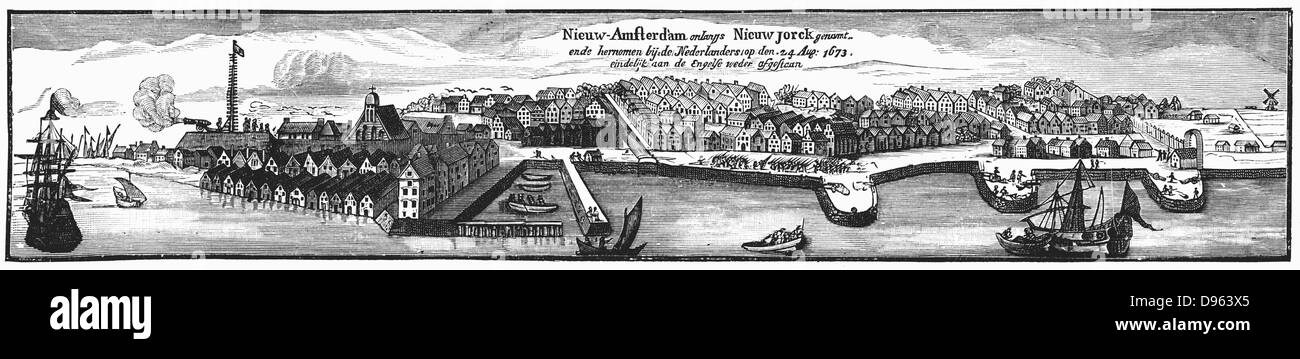 Nieuw-Amsterdam onlangs Nieuw jorck genamt
ende hernomen bij de Nederlanders op den 24 Aug: 1673.
eindelijk aan de Engelse weder afgestaan
a
alamy stock photo
D963X5
www.alamy.com